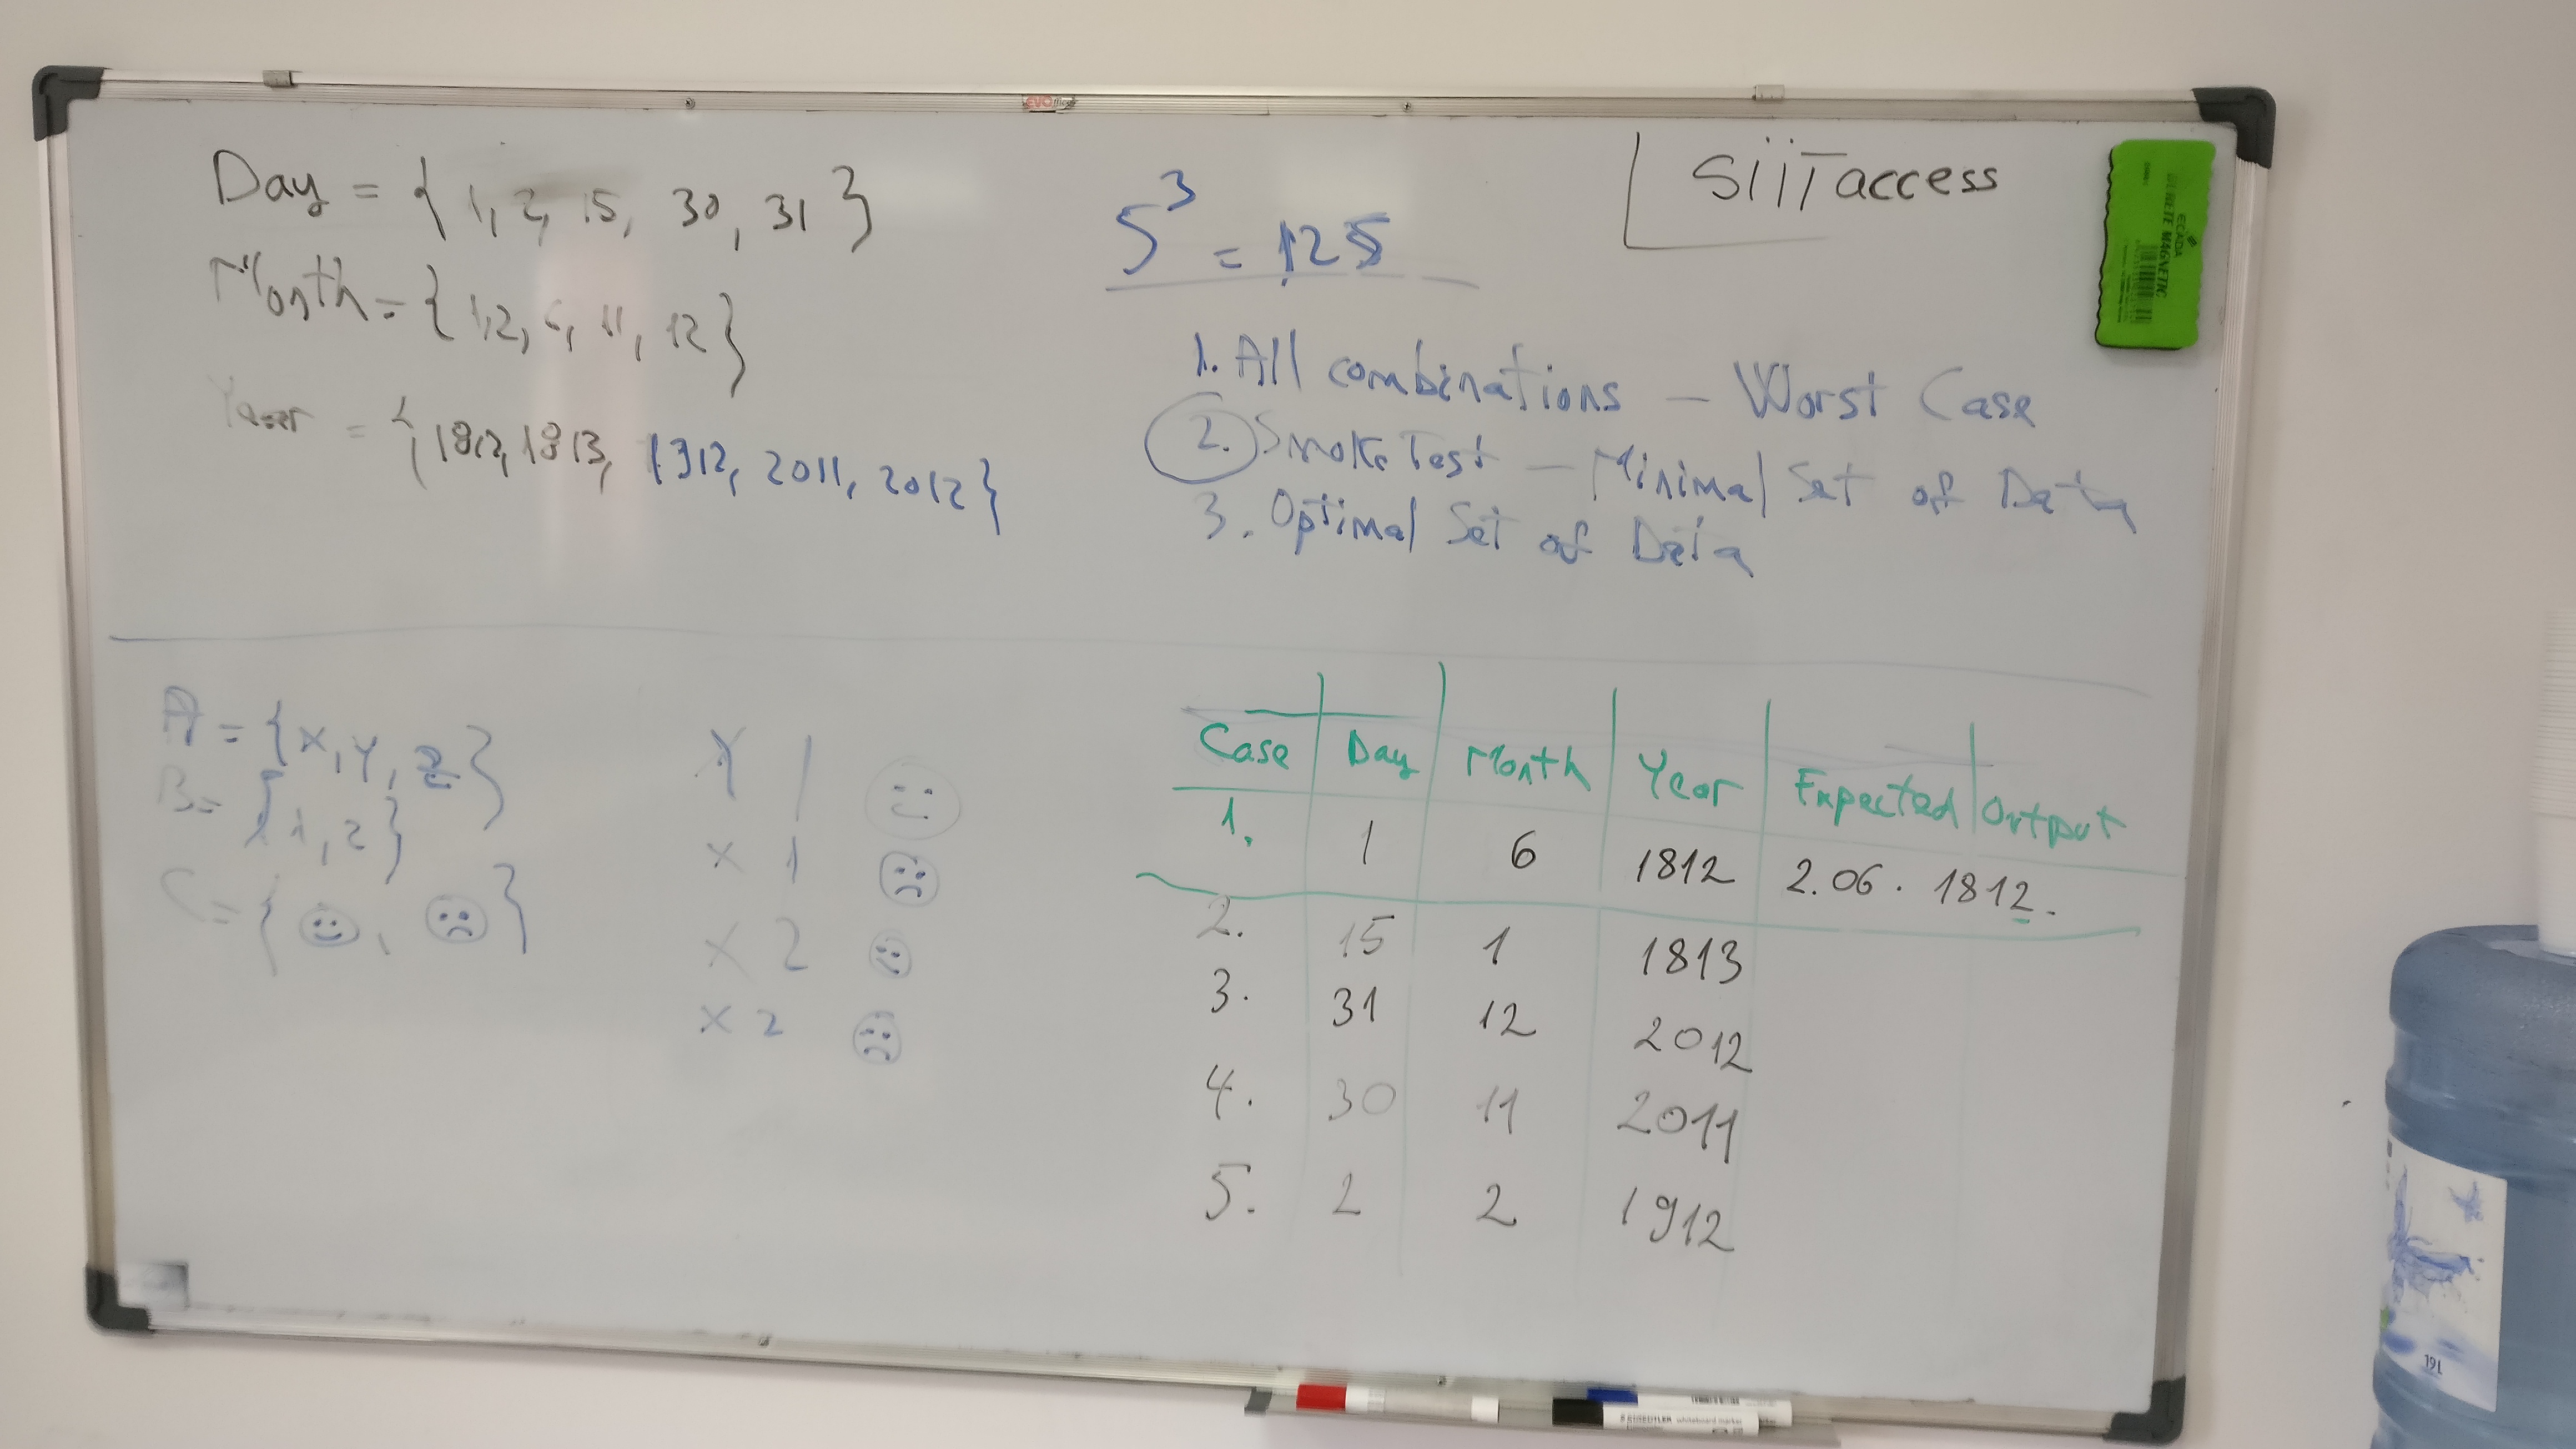 EVOffice
Day = { 1, 2, 15, 30, 31 }
Month = { 1, 2, 6, 11, 12 }
Year = { 1812, 1813, 1912, 2011, 2012 }
5³ = 125
SiiT access
1. All combinations – Worst Case
2. Smoke Test – Minimal Set of Data
3. Optimal Set of Data
A = { x, y, z }
B = { 1, 2 }
C = { 🙂, ☹ }
X 1 🙂
x 1 ☹
x 2 🙂
x 2 ☹
Case Day Month Year Expected Output
1. 1 6 1812 2.06.1812.
2. 15 1 1813
3. 31 12 2012
4. 30 11 2011
5. 2 2 1912
ECADA
BURETE MAGNETIC
STAEDTLER whiteboard marker
19L